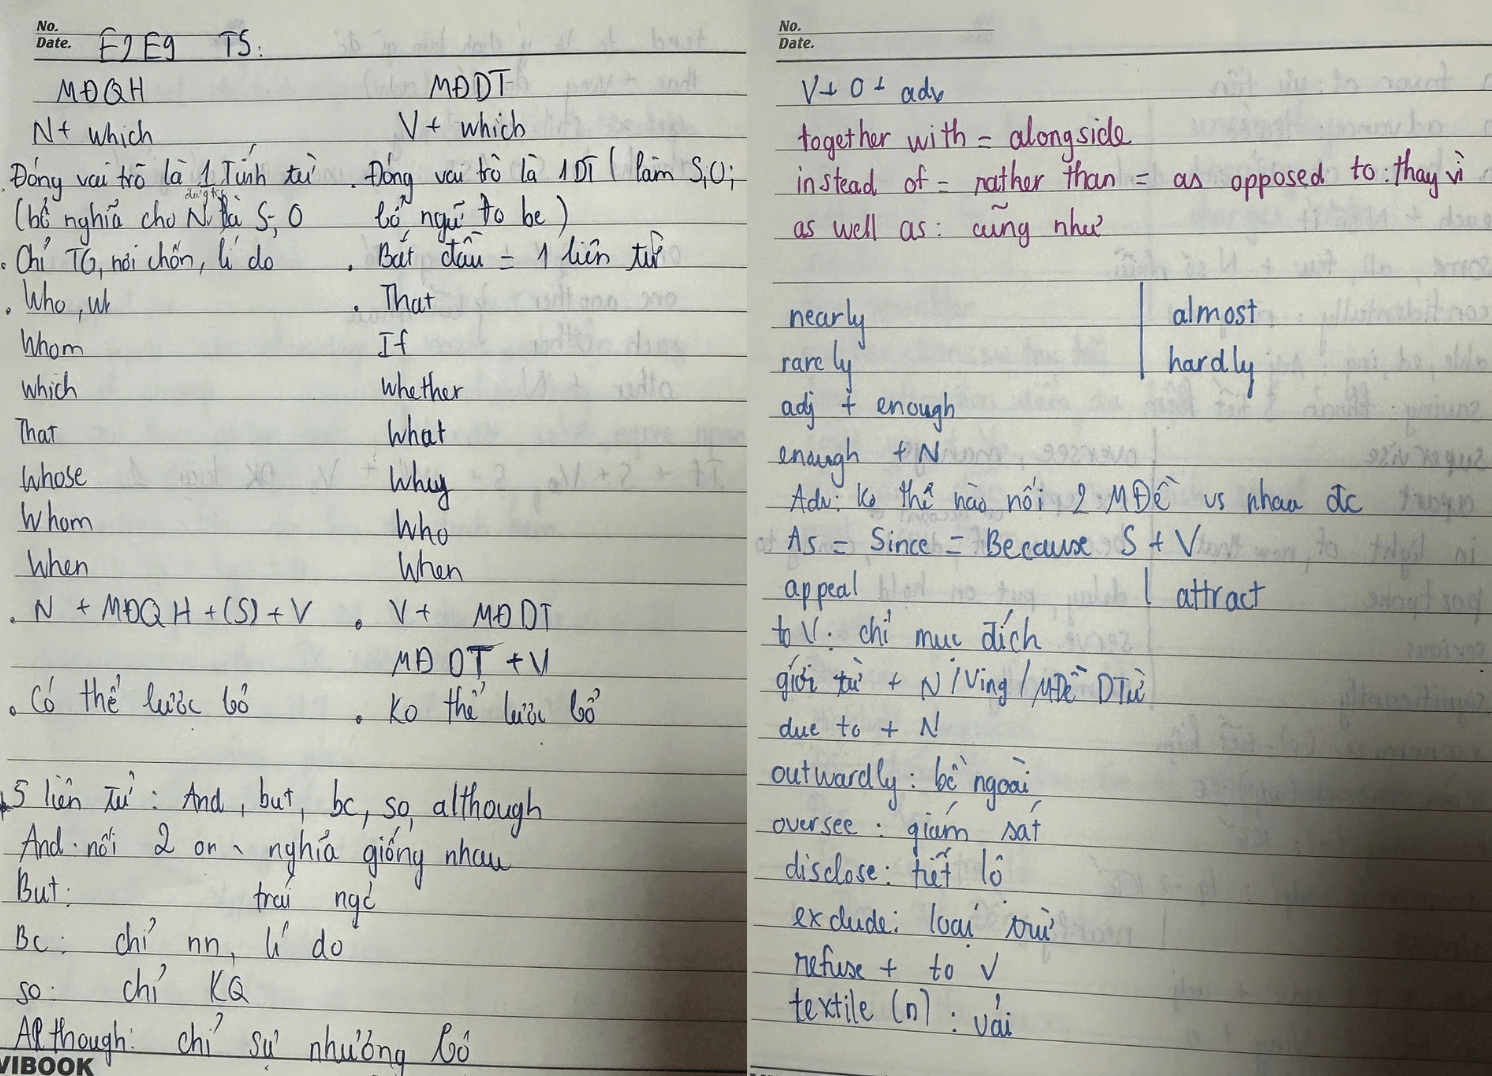 No.
Date. E2E9 T5:
MĐQH MĐDT
N+ which V+ which
. Đóng vai trò là 1 Tính từ . Đóng vai trò là 1 DT ( làm S,O;
đứng trc
(bổ nghĩa cho N là S, O bổ ngữ to be )
. Chỉ TG, nơi chốn, lí do . Bắt đầu = 1 liên từ
. Who, wh . That
Whom If
which whether
That what
Whose Why
Whom Who
When When
. N + MĐQH + (S) + V . V + MĐDT
MĐDT + V
. Có thể lược bỏ . Ko thể lược bỏ
5 liên từ : And, but, bc, so, although
And: nối 2 nghĩa giống nhau
But: trái ngc
Bc: chỉ nn, lí do
so: chỉ KQ
Although: chỉ sự nhượng bộ
VIBOOK
No.
Date.
V + O + adv
together with = alongside
instead of = rather than = as opposed to : thay vì
as well as : cũng như
nearly | almost
rarely | hardly
adj + enough
enough + N
Adv: Ko thể nào nối 2 MĐề vs nhau đc
As = Since = Because S + V
appeal | attract
to V : chỉ mục đích
giới từ + N / Ving / MĐề DTừ
due to + N
outwardly : bề ngoài
oversee : giám sát
disclose : tiết lộ
exclude : loại trừ
refuse + to V
textile (n) : vải